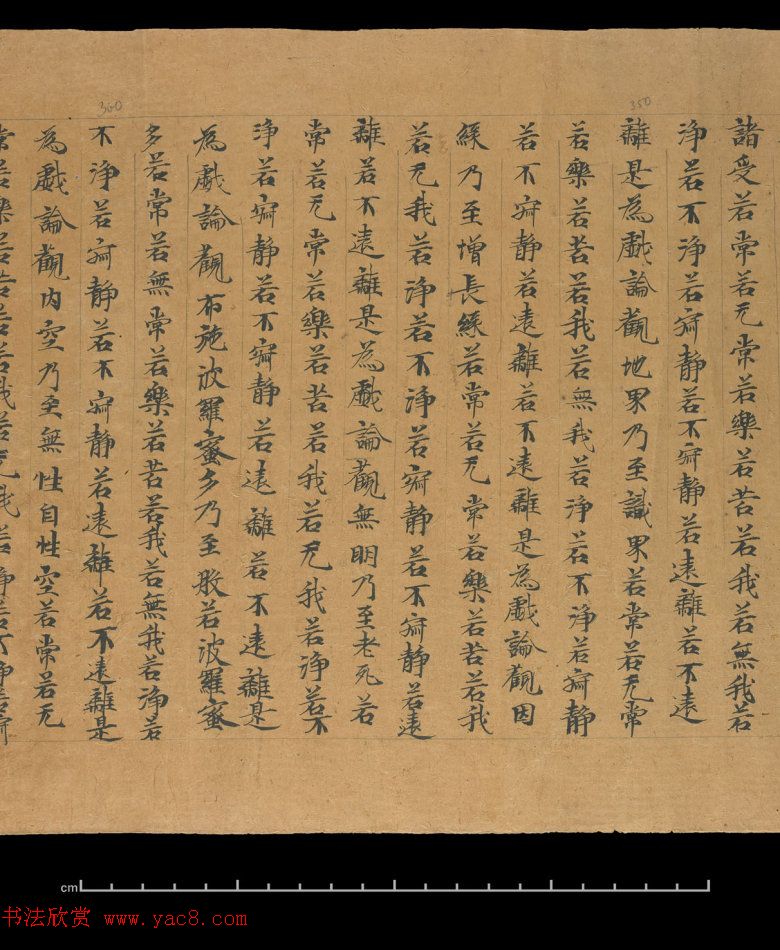 350
360
諸受若常若无常若樂若苦若我若無我若
淨若不淨若寂静若不寂静若遠離若不遠
離是為戲論觀地界乃至識界若常若无常
若樂若苦若我若無我若淨若不淨若寂静
若不寂静若遠離若不遠離是為戲論觀因
緣乃至增長緣若常若无常若樂若苦若我
若无我若淨若不淨若寂静若不寂静若遠
離若不遠離是為戲論觀無明乃至老死若
常若无常若樂若苦若我若无我若淨若不
淨若寂静若不寂静若遠離若不遠離是
為戲論觀布施波羅蜜多乃至般若波羅蜜
多若常若無常若樂若苦若我若無我若淨若
不淨若寂静若不寂静若遠離若不遠離是
為戲論觀内空乃至無性自性空若常若无
常若樂若苦若若我若无我若淨若不淨若寂
cm
书法欣赏 www.yac8.com